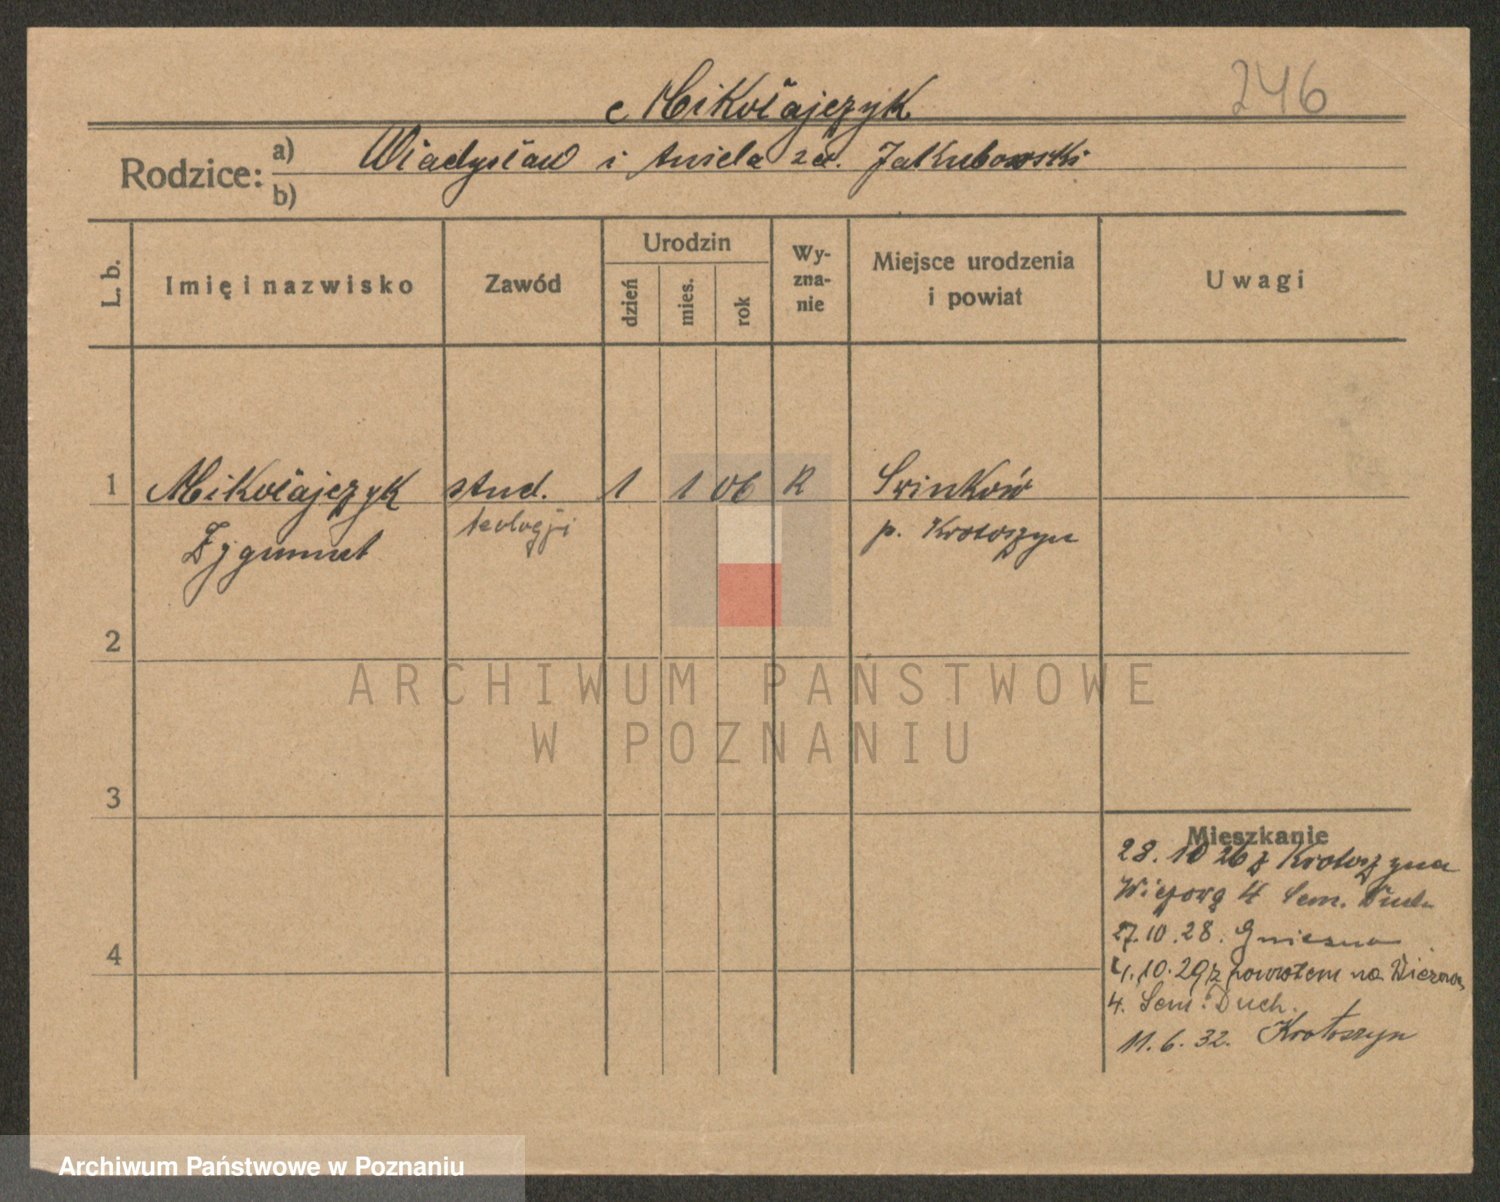 246
Mikołajczyk
Rodzice:
a) Władysław i Aniela zd. Jakubowski
b)
L. b.
Imię i nazwisko
Zawód
Urodzin
dzień
mies.
rok
Wy-
zna-
nie
Miejsce urodzenia
i powiat
Uwagi
1 Mikołajczyk stud. 1 1 06 R Swinków
Zygmunt teologji p. Krotoszyn
2
ARCHIWUM PAŃSTWOWE
W POZNANIU
3
Mieszkanie
28. 10 26 z Krotoszyna
4 Sem. Duch.
27.10.28. Gniezna
4
4.10.29 z powrotem na
4. Sem. Duch.
11.6.32. Krotoszyn
Archiwum Państwowe w Poznaniu